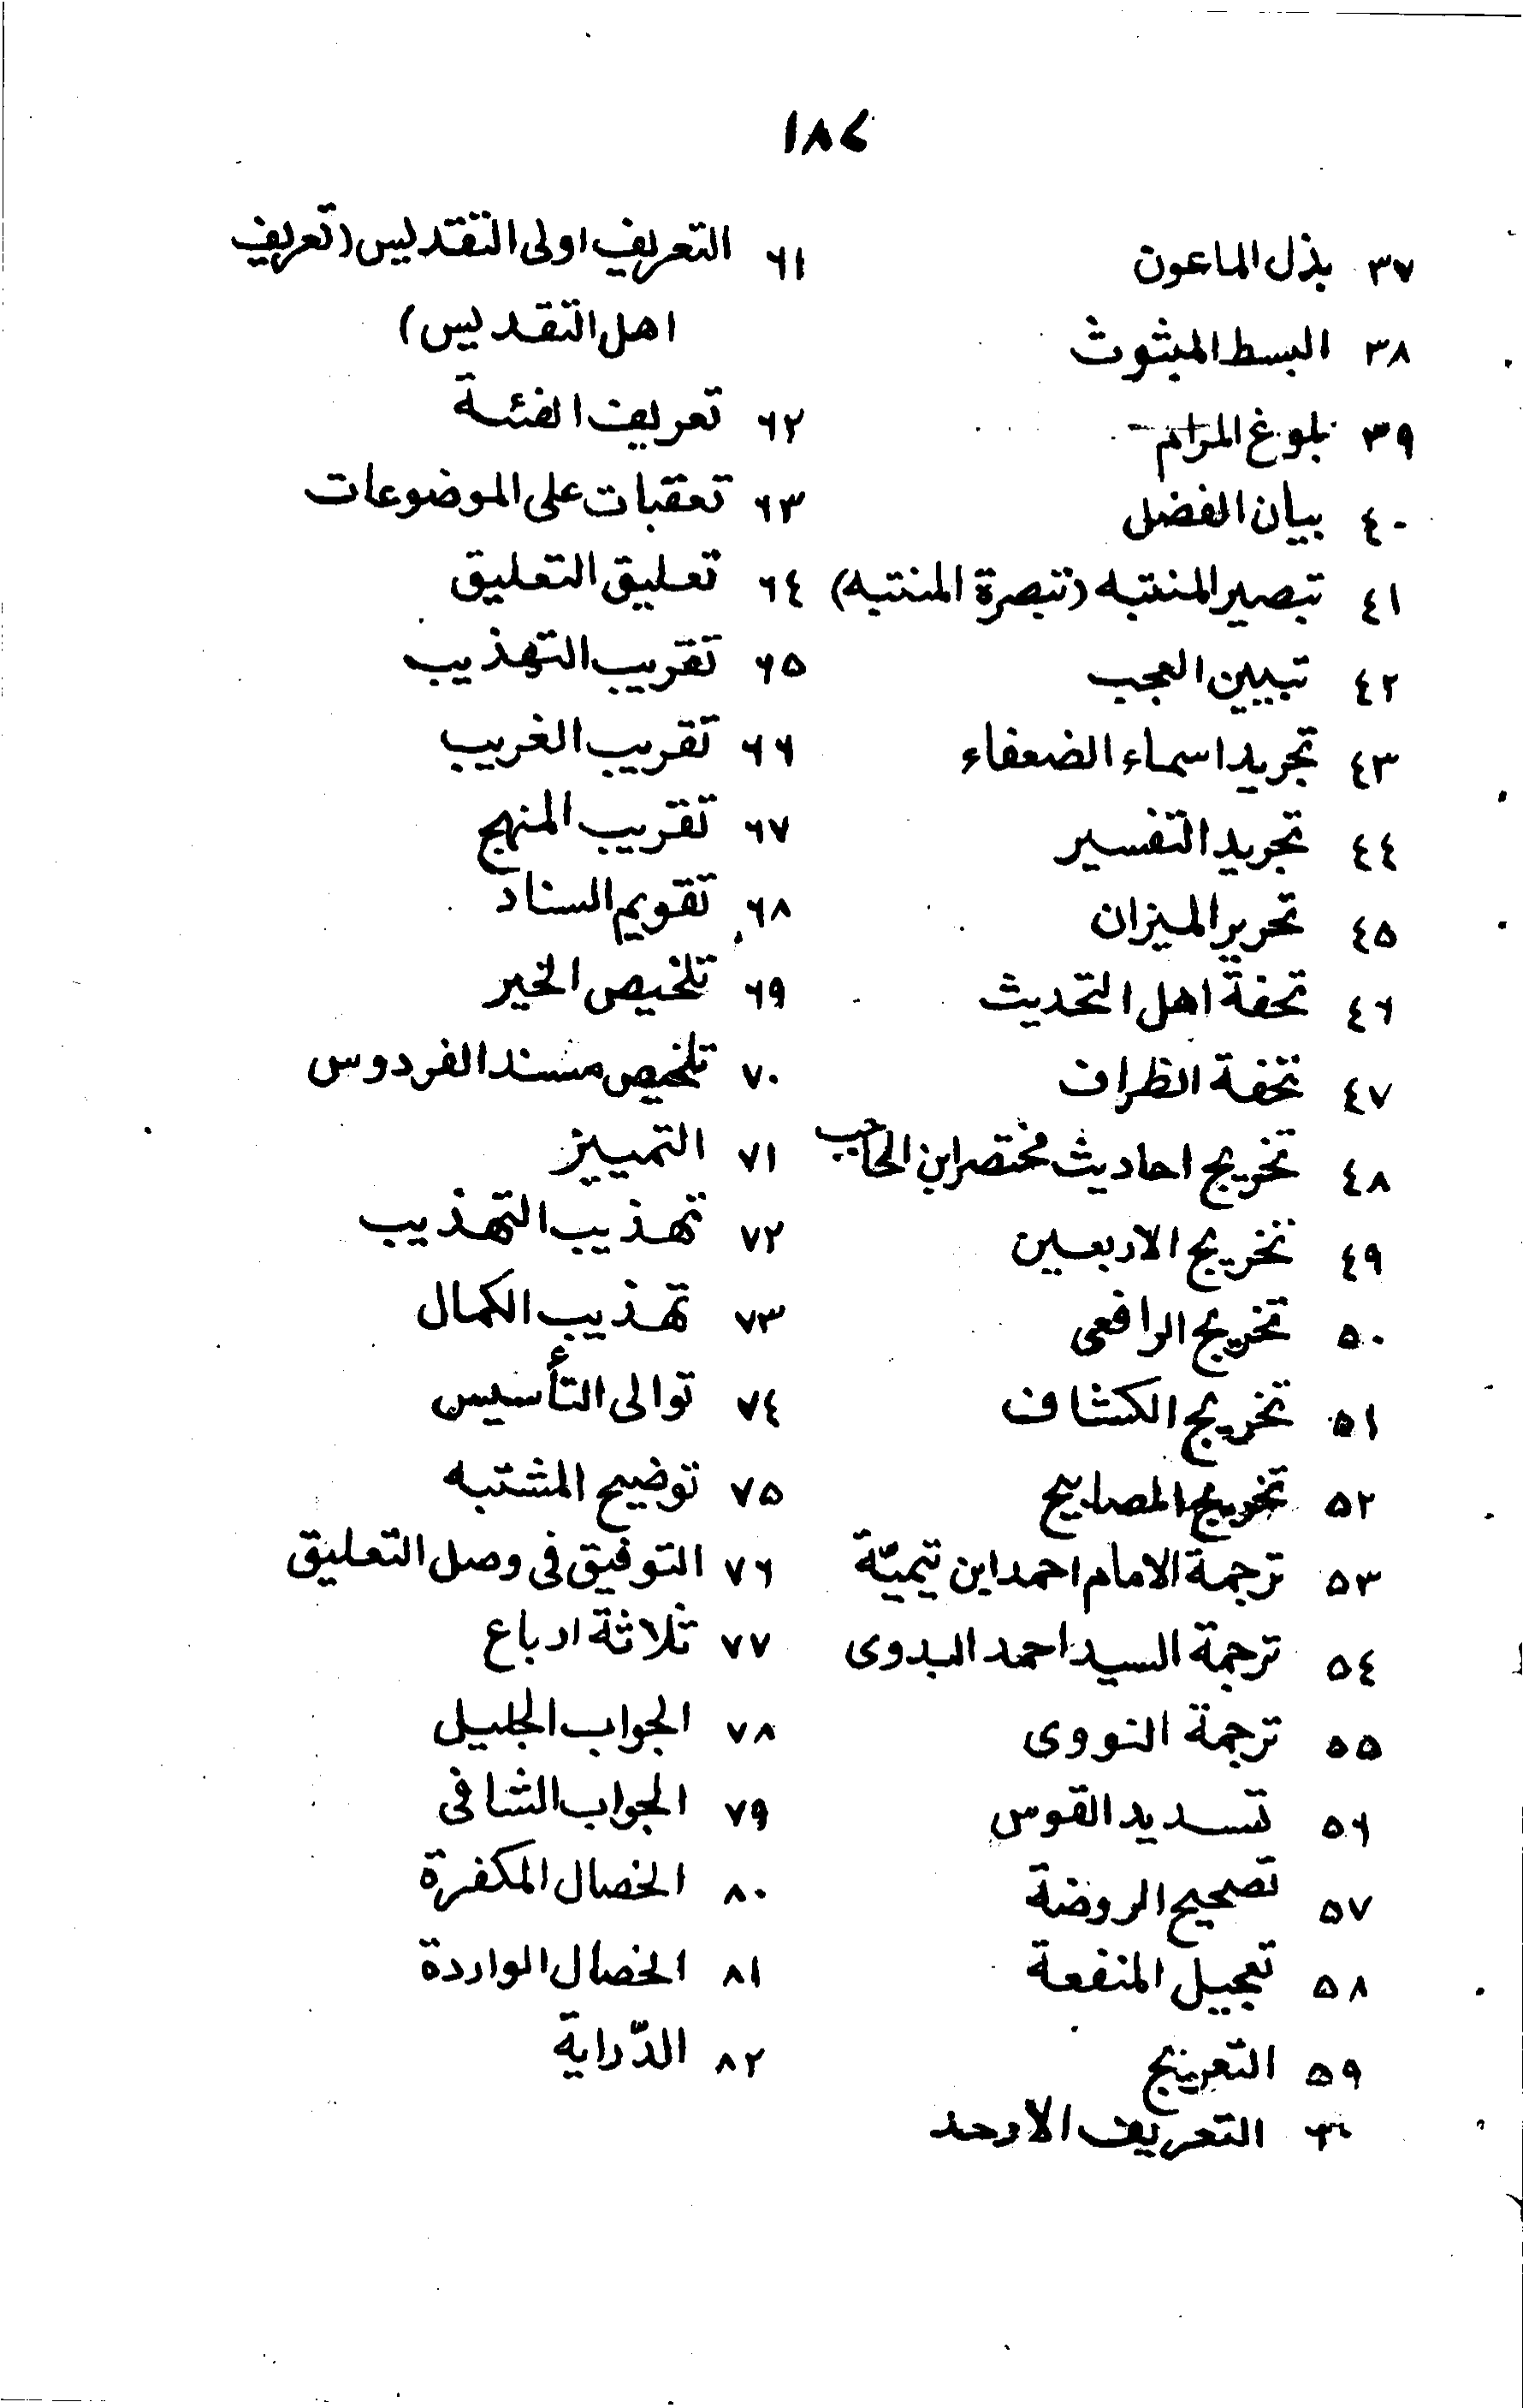 ١٨٤
٣٧ بذل الماعون
٣٨ البسط المبثوث
٣٩ بلوغ المرام
٤٠ بيان الفضل
٤١ تبصير المنتبه (تبصرة المنتبه)
٤٢ تبيين العجب
٤٣ تجريد اسماء الضعفاء
٤٤ تجريد التفسير
٤٥ تحرير الميزان
٤٦ تحفة اهل التحديث
٤٧ تحفة الظراف
٤٨ تخريج احاديث مختصر ابن الحاجب
٤٩ تخريج الاربعين
٥٠ تخريج الرافعى
٥١ تخريج الكشاف
٥٢ تخريج المصابيح
٥٣ ترجمة الامام احمد ابن تيميّة
٥٤ ترجمة السيد احمد البدوى
٥٥ ترجمة النووى
٥٦ تسديد القوس
٥٧ تصحيح الروضة
٥٨ تعجيل المنفعة
٥٩ التعريج
٦٠ التعريف الاوحد
٦١ التعريف اولى التقديس (تعريف
اهل التقديس)
٦٢ تعريف الفئة
٦٣ تعقبات على الموضوعات
٦٤ تعليق التعليق
٦٥ تقريب التهذيب
٦٦ تقريب الغريب
٦٧ تقريب المنهج
٦٨ تقويم السناد
٦٩ تلخيص الخير
٧٠ تلخيص مسند الفردوس
٧١ التمييز
٧٢ تهذيب التهذيب
٧٣ تهذيب الكمال
٧٤ توالى التأسيس
٧٥ توضيح المشتبه
٧٦ التوفيق فى وصل التعليق
٧٧ ثلاثة ارباع
٧٨ الجواب الجليل
٧٩ الجواب الشافى
٨٠ الخصال المكفرة
٨١ الخصال الواردة
٨٢ الدّراية